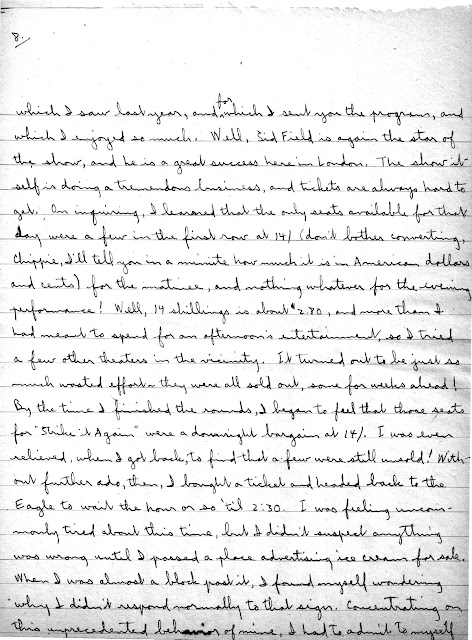 8.
for
which I saw last year, and which I sent you the program, and
which I enjoyed so much. Well, Sid Field is again the star of
the show, and he is a great success here in London. The show it-
self is doing a tremendous business, and tickets are always hard to
get. On inquiring, I learned that the only seats available for that
day were a few in the first row at 14/ (don't bother converting,
Chippie, I'll tell you in a minute how much it is in American dollars
and cents) for the matinee, and nothing whatever for the evening
performance! Well, 14 shillings is about $2.80, and more than I
had meant to spend for an afternoon's entertainment, so I tried
a few other theaters in the vicinity. It turned out to be just so
much wasted effort – they were all sold out, some for weeks ahead!
By the time I finished the rounds, I began to feel that those seats
for "Strike it Again" were a downright bargain at 14/. I was even
relieved, when I got back, to find that a few were still unsold! With-
out further ado, then, I bought a ticket and headed back to the
Eagle to wait the hour or so 'til 2:30. I was feeling uncom-
monly tired about this time, but I didn't suspect anything
was wrong until I passed a place advertising ice cream for sale.
When I was almost a block past it, I found myself wondering
why I didn't respond normally to that sign. Concentrating on
this unprecedented behavior of mine, I had to admit to myself